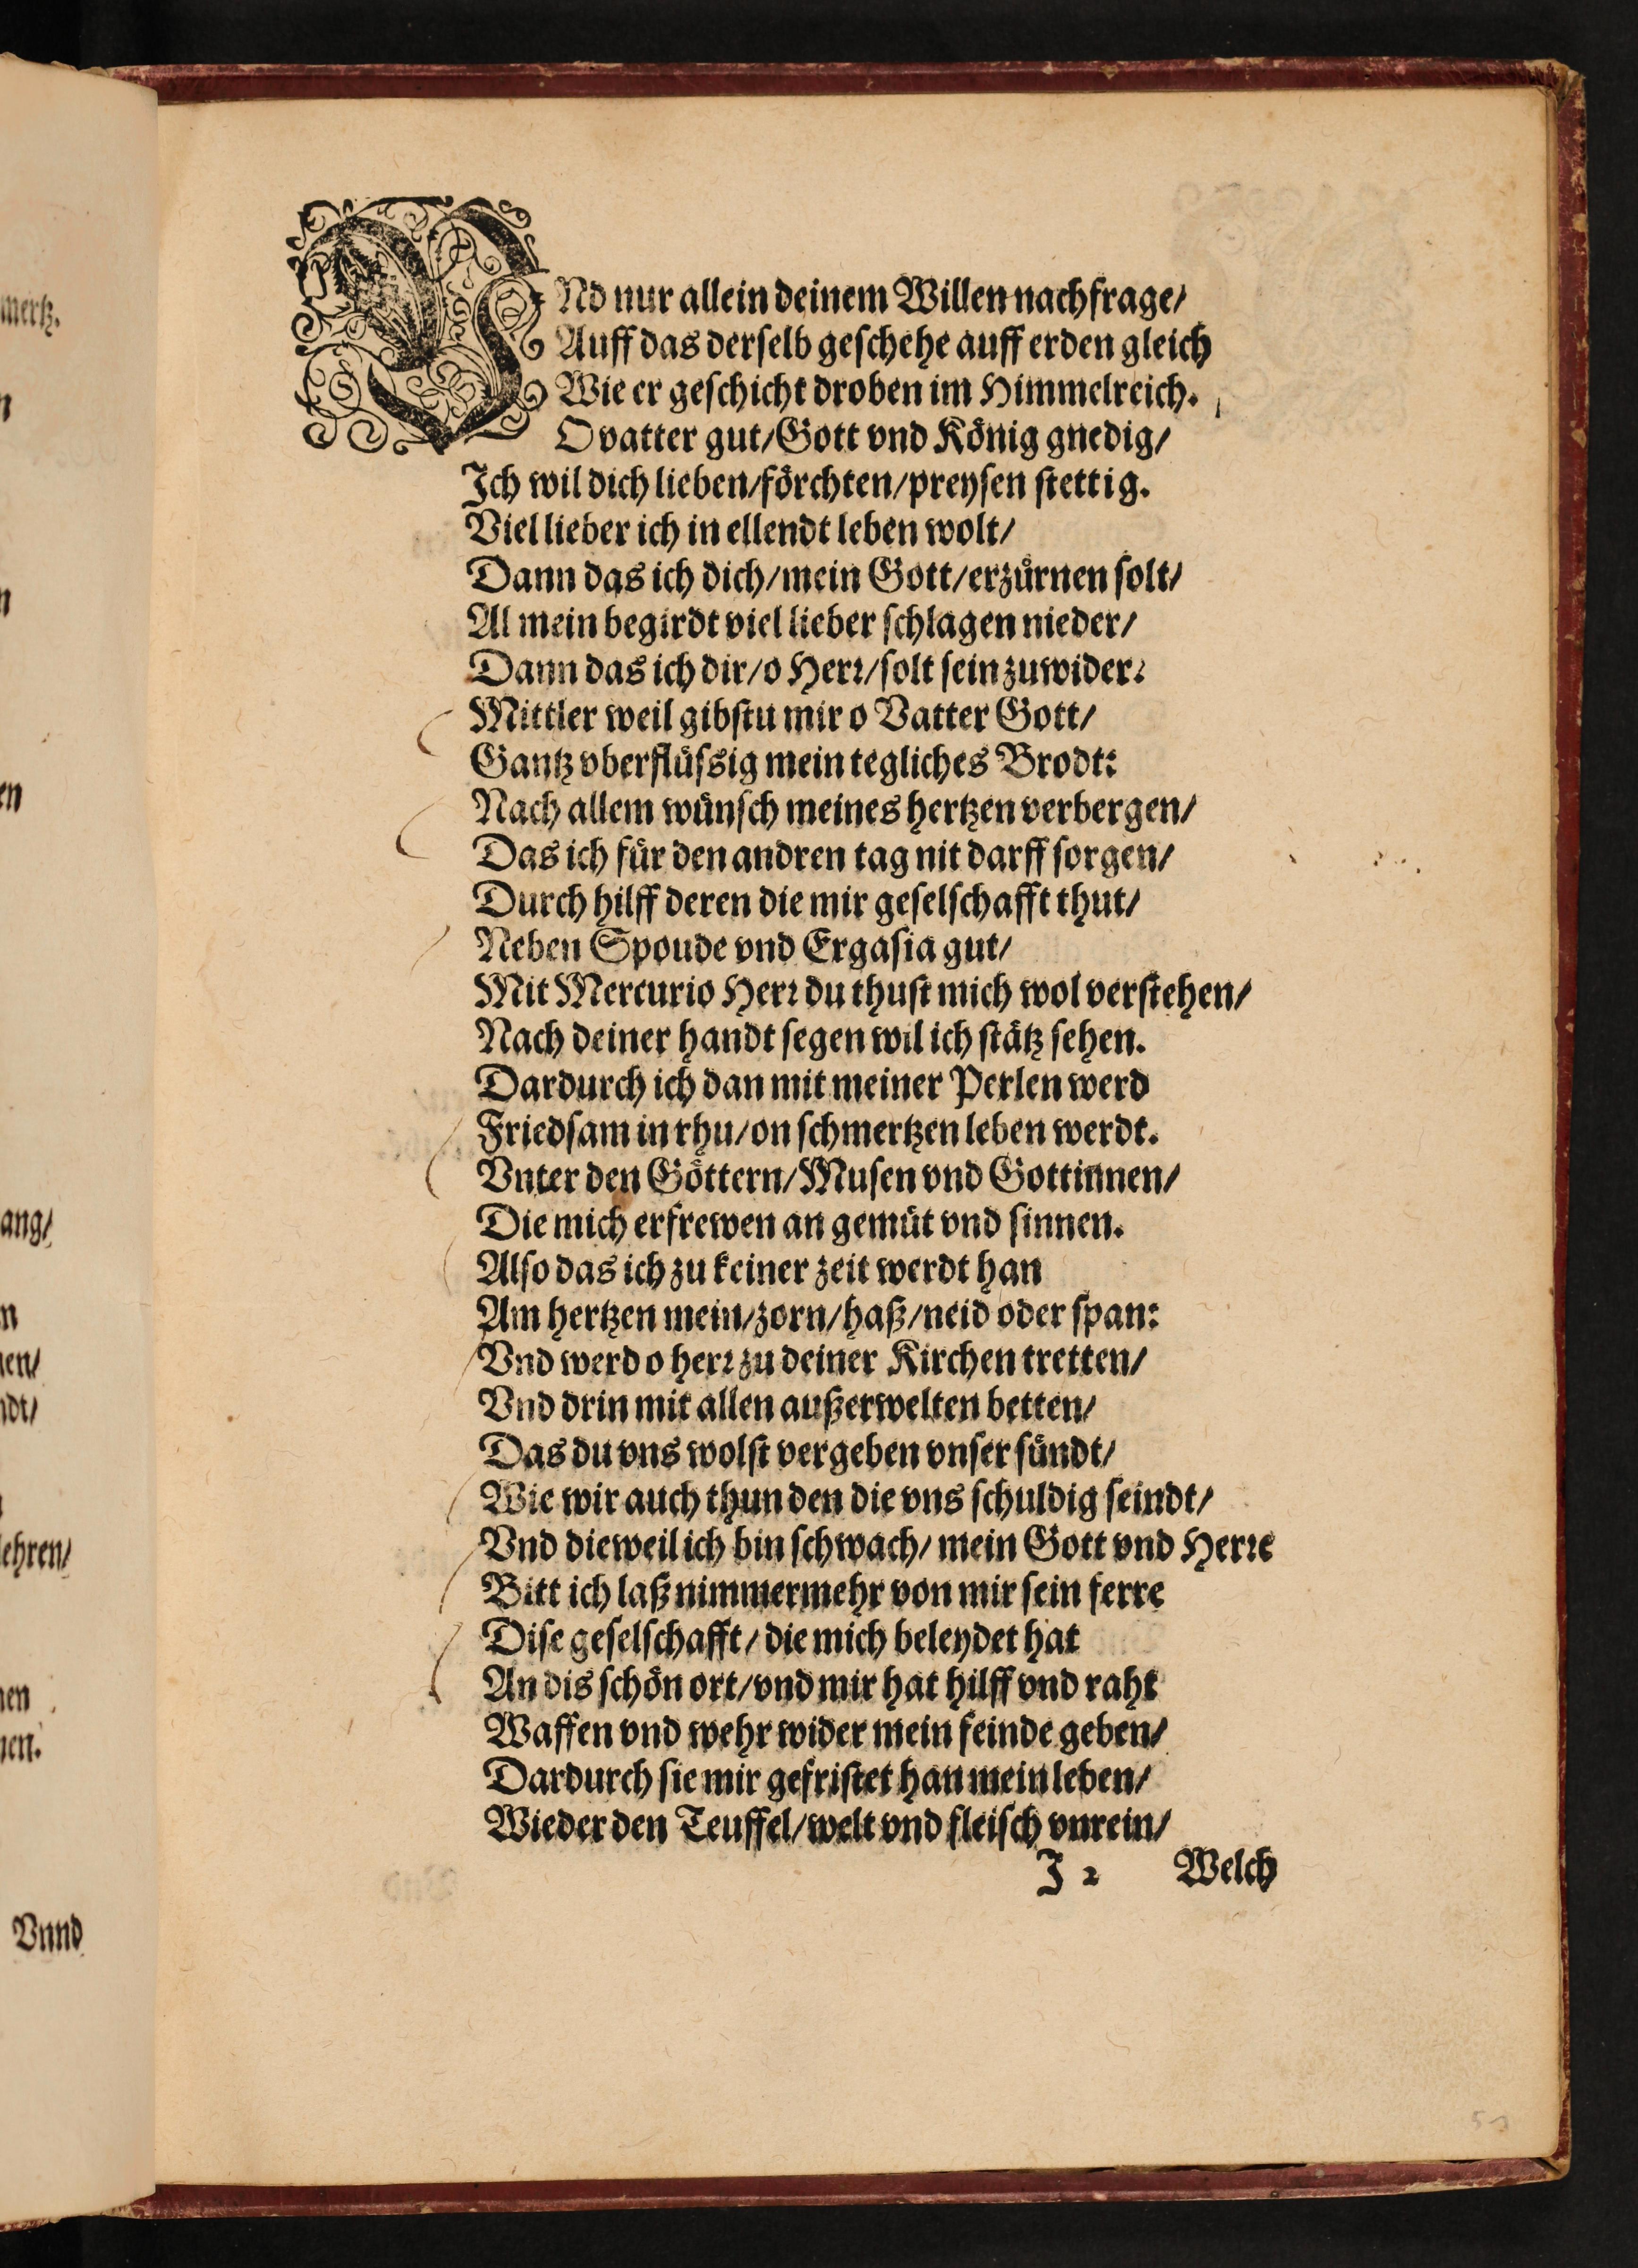 VNd nur allein deinem Willen nachfrage/
Auff das derselb geschehe auff erden gleich
Wie er geschicht droben im Himmelreich.
O vatter gut/Gott vnd König gnedig/
Ich wil dich lieben/förchten/preysen stettig.
Viel lieber ich in ellendt leben wolt/
Dann das ich dich/mein Gott/erzürnen solt/
Al mein begirdt viel lieber schlagen nieder/
Dann das ich dir/o Herr/solt sein zuwider:
Mittler weil gibstu mir o Vatter Gott/
Gantz vberflüssig mein tegliches Brodt:
Nach allem wünsch meines hertzen verbergen/
Das ich für den andren tag nit darff sorgen/
Durch hilff deren die mir geselschafft thut/
Neben Spoude vnd Ergasia gut/
Mit Mercurio Herr du thust mich wol verstehen/
Nach deiner handt segen wil ich stätz sehen.
Dardurch ich dan mit meiner Perlen werd
Friedsam in rhu/on schmertzen leben werdt.
Vnter den Göttern/Musen vnd Gottinnen/
Die mich erfrewen an gemüt vnd sinnen.
Also das ich zu keiner zeit werdt han
Am hertzen mein/zorn/haß/neid oder span:
Vnd werd o herr zu deiner Kirchen tretten/
Vnd drin mit allen außerwelten betten/
Das du vns wolst vergeben vnser sündt/
Wie wir auch thun den die vns schuldig seindt/
Vnd dieweil ich bin schwach/ mein Gott vnd Herre
Bitt ich laß nimmermehr von mir sein ferre
Dise geselschafft/ die mich beleydet hat
An dis schön ort/vnd mir hat hilff vnd raht
Waffen vnd wehr wider mein feinde geben/
Dardurch sie mir gefristet han mein leben/
Wieder den Teuffel/welt vnd fleisch vnrein/
J 2 Welch
mertz.
n
n
en
ang/
n
nen/
ndt/
lehren/
nen
nen.
Vnnd